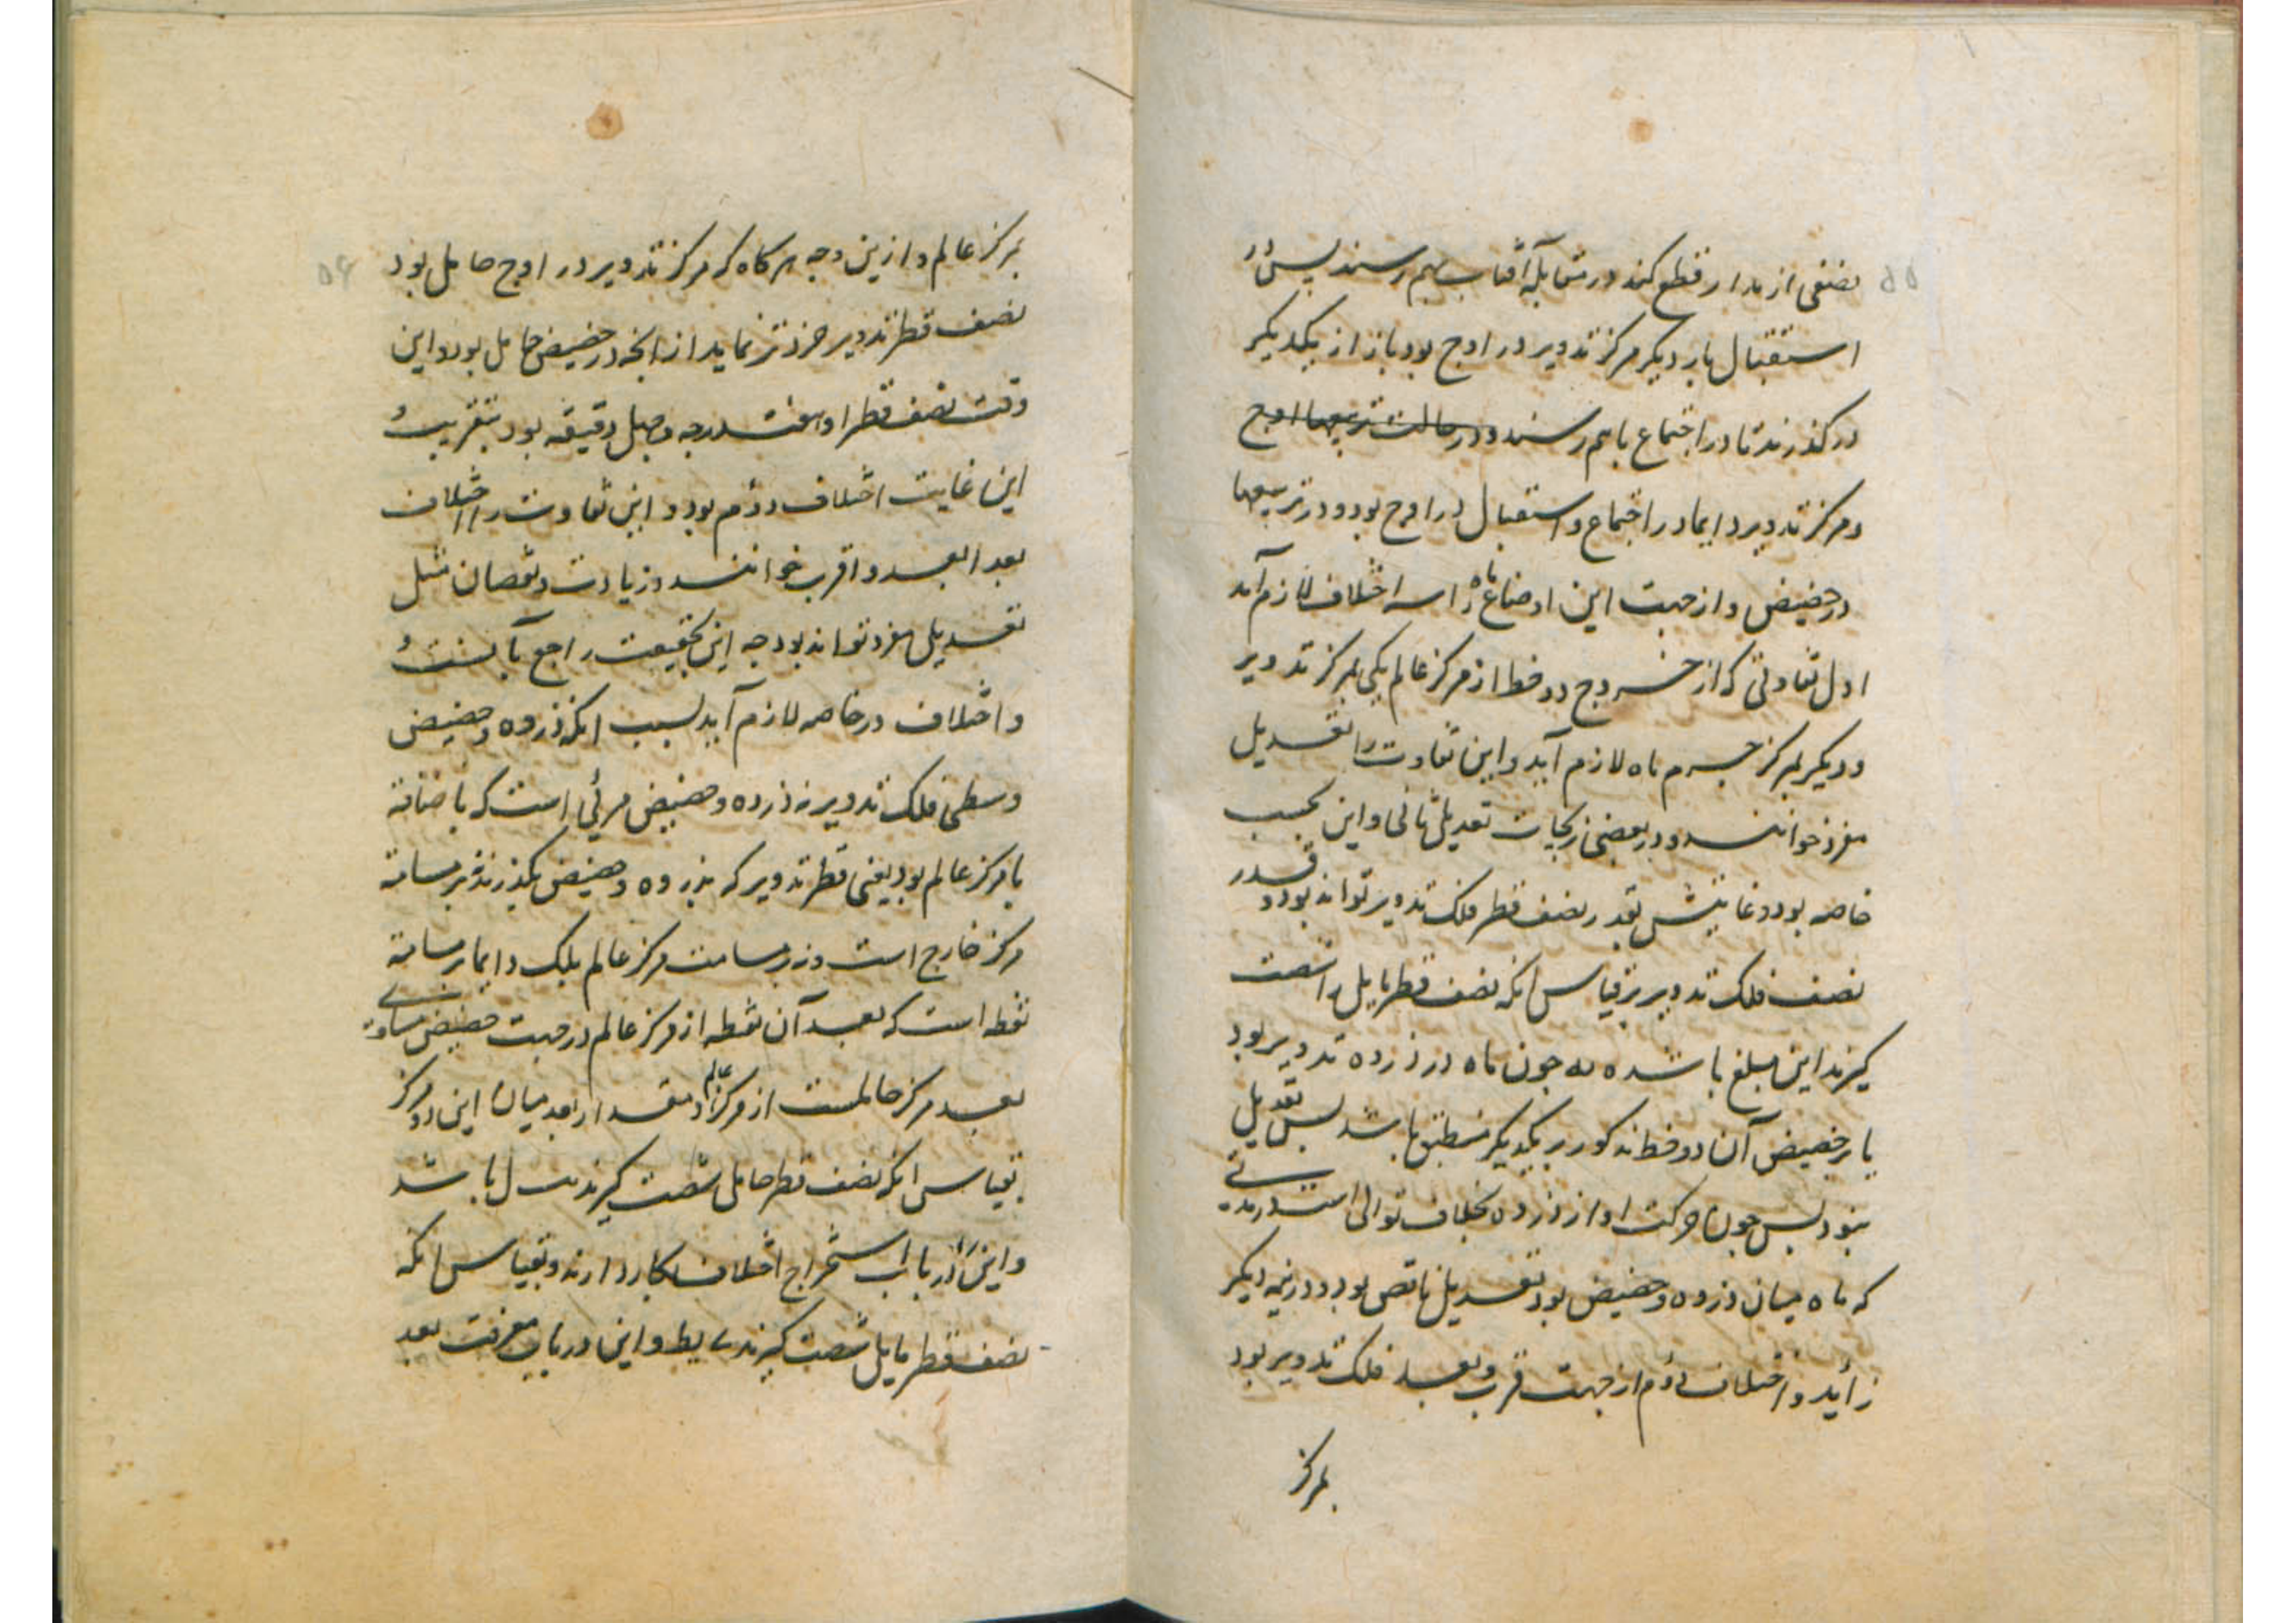 ۵۵
نصفی از مدار قطع کند در مقابله آفتاب بهم رسند پس در
استقبال بار دیکر مرکز تدویر در اوج بود باز از یکدیکر
در کذرند تا در اجتماع باهم رسند و در حالت تربیعها اوج
و مرکز تدویر دایما در اجتماع و استقبال در اوج بود و در تربیعها
در حضیض و از جهت این اوضاع ماه را سه اختلاف لازم آمد
اول تفاوتی که از خروج دو خط از مرکز عالم یکی بمرکز تدویر
و دیکر بمرکز جرم ماه لازم آید و این تفاوت را تعدیل
مفرد خوانند و در بعضی زیجات تعدیل ثانی و این بحسب
خاصه بود و غایتش بقدر نصف قطر فلک تدویر تواند بود و قدر
نصف فلک تدویر بر قیاس انکه نصف قطر مایل را شصت
کیرند این مبلغ باشد ه یه چون ماه در ذروه تدویر بود
یا بر حضیض آن دو خط مذکور بر یکدیکر منطبق باشد پس تعدیل
نبود پس چون حرکت او از ذروه بخلاف توالی است در مدتی
که ماه میان ذروه و حضیض بود تعدیل ناقص بود و در نیمه دیکر
زاید و اختلاف دوم از جهت قرب و بعد فلک تدویر بود
بمرکز
۵۶
بمرکز عالم و ازین وجه هرکاه که مرکز تدویر در اوج حامل بود
نصف قطر تدویر خردتر نماید از انچه در حضیض حامل بود و این
وقت نصف قطر او هفت درجه و چهل دقیقه بود بتقریب و
این غایت اختلاف دوم بود و این تفاوت را اختلاف
بعد ابعد و اقرب خوانند و زیادت و نقصان مثل
تعدیل مفرد تواند بود چه این بحقیقت راجع بآنست و
و اختلاف در خاصه لازم آید بسبب انکه ذروه و حضیض
وسطی فلک تدویر نه ذروه و حضیض مرئی است که باضافه
با مرکز عالم بود یعنی قطر تدویر که بذروه و حضیض بکذرد نه بر مسامته
مرکز خارج است و نه بر مسامت مرکز عالم بلک دایما بر مسامته
نقطه است که بعد آن نقطه از مرکز عالم در جهت حضیض مساوی
بعد مرکز حاملست از مرکز عالم و مقدار بعد میان این دو مرکز
بقیاس انکه نصف قطر حامل شصت کیرند ل باشد
و این در باب استخراج اختلاف بکار دارند و بقیاس انکه
نصف قطر مایل شصت کیرند ی یط و این در باب معرفت بعد